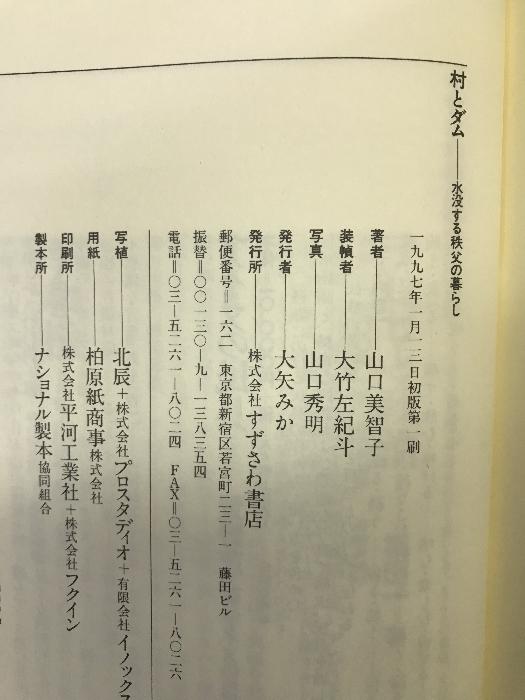 村とダム――水没する秩父の暮らし
一九九七年一月一三日初版第一刷
著者――山口美智子
装幀者――大竹左紀斗
写真――山口秀明
発行者――大矢みか
発行所――株式会社すずさわ書店
郵便番号＝一六二　東京都新宿区若宮町二三―一　藤田ビル
振替＝〇〇一三〇―九―一三八三五四
電話＝〇三―五二六一―八〇二四　FAX＝〇三―五二六一―八〇二六
写植――北辰＋株式会社プロスタディオ＋有限会社イノックス
用紙――柏原紙商事株式会社
印刷所――株式会社平河工業社＋株式会社フクイン
製本所――ナショナル製本協同組合